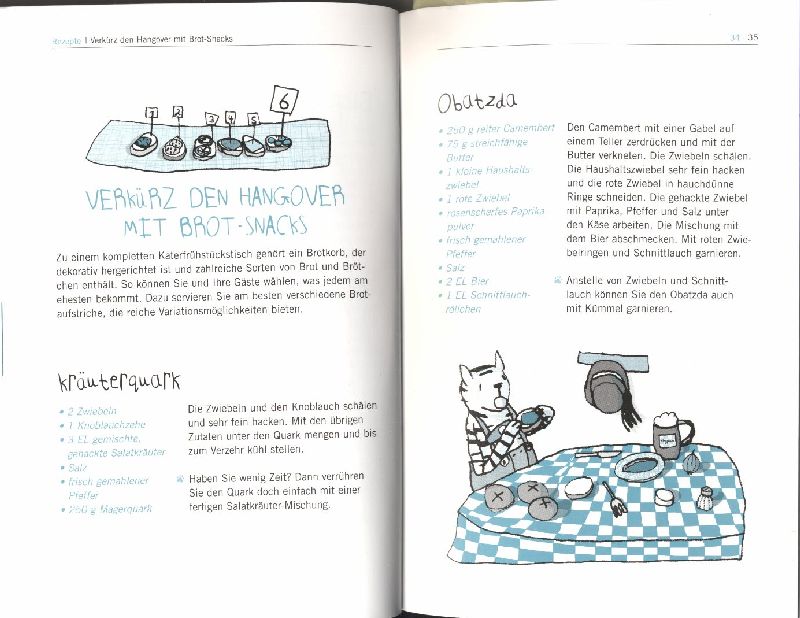 Rezepte | Verkürz den Hangover mit Brot-Snacks
1 2 3 4 5 6
VERKÜRZ DEN HANGOVER
MIT BROT-SNACKS
Zu einem kompletten Katerfrühstückstisch gehört ein Brotkorb, der
dekorativ hergerichtet ist und zahlreiche Sorten von Brot und Bröt-
chen enthält. So können Sie und Ihre Gäste wählen, was jedem am
ehesten bekommt. Dazu servieren Sie am besten verschiedene Brot-
aufstriche, die reiche Variationsmöglichkeiten bieten.
Kräuterquark
• 2 Zwiebeln
• 1 Knoblauchzehe
• 3 EL gemischte,
gehackte Salatkräuter
• Salz
• frisch gemahlener
Pfeffer
• 250 g Magerquark
Die Zwiebeln und den Knoblauch schälen
und sehr fein hacken. Mit den übrigen
Zutaten unter den Quark mengen und bis
zum Verzehr kühl stellen.
Haben Sie wenig Zeit? Dann verrühren
Sie den Quark doch einfach mit einer
fertigen Salatkräuter-Mischung.
34 35
Obatzda
• 250 g reifer Camembert
• 75 g streichfähige
Butter
• 1 kleine Haushalts
zwiebel
• 1 rote Zwiebel
• rosenscharfes Paprika
pulver
• frisch gemahlener
Pfeffer
• Salz
• 2 EL Bier
• 1 EL Schnittlauch-
röllchen
Den Camembert mit einer Gabel auf
einem Teller zerdrücken und mit der
Butter verkneten. Die Zwiebeln schälen.
Die Haushaltszwiebel sehr fein hacken
und die rote Zwiebel in hauchdünne
Ringe schneiden. Die gehackte Zwiebel
mit Paprika, Pfeffer und Salz unter
den Käse arbeiten. Die Mischung mit
dem Bier abschmecken. Mit roten Zwie-
belringen und Schnittlauch garnieren.
Anstelle von Zwiebeln und Schnitt-
lauch können Sie den Obatzda auch
mit Kümmel garnieren.